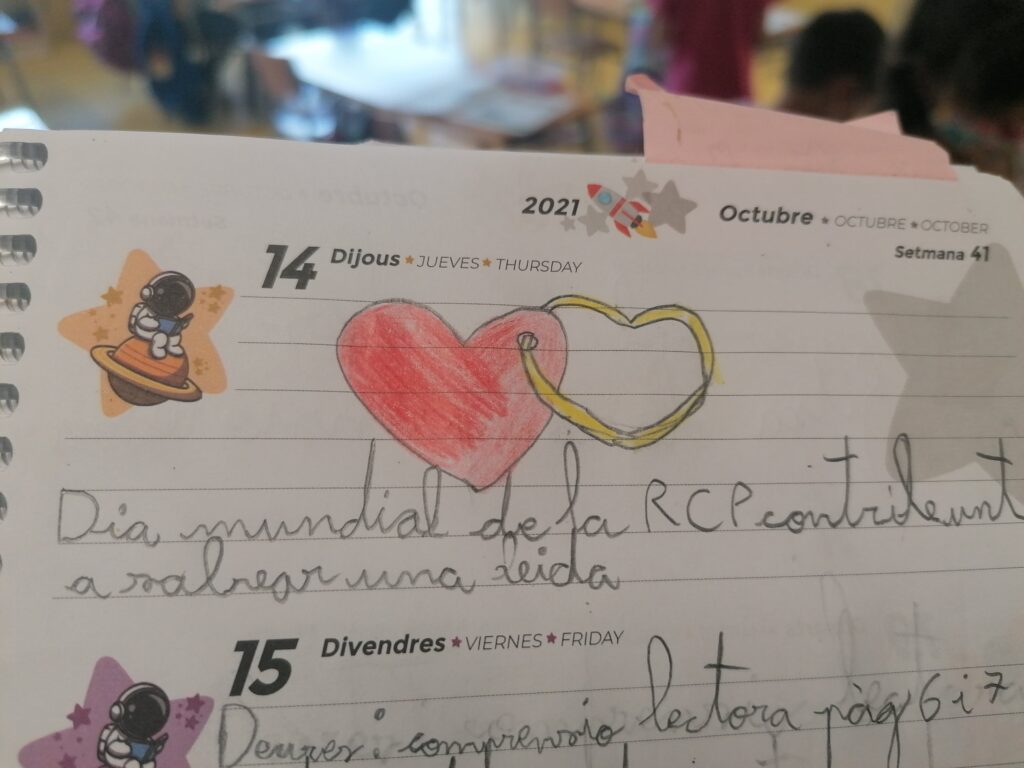 2021 Octubre ★ OCTUBRE ★ OCTOBER
Setmana 41
14 Dijous ★ JUEVES ★ THURSDAY
Dia mundial de la RCP
a salvar una vida
15 Divendres ★ VIERNES ★ FRIDAY
Deures: comprensio lectora pàg 6 i 7